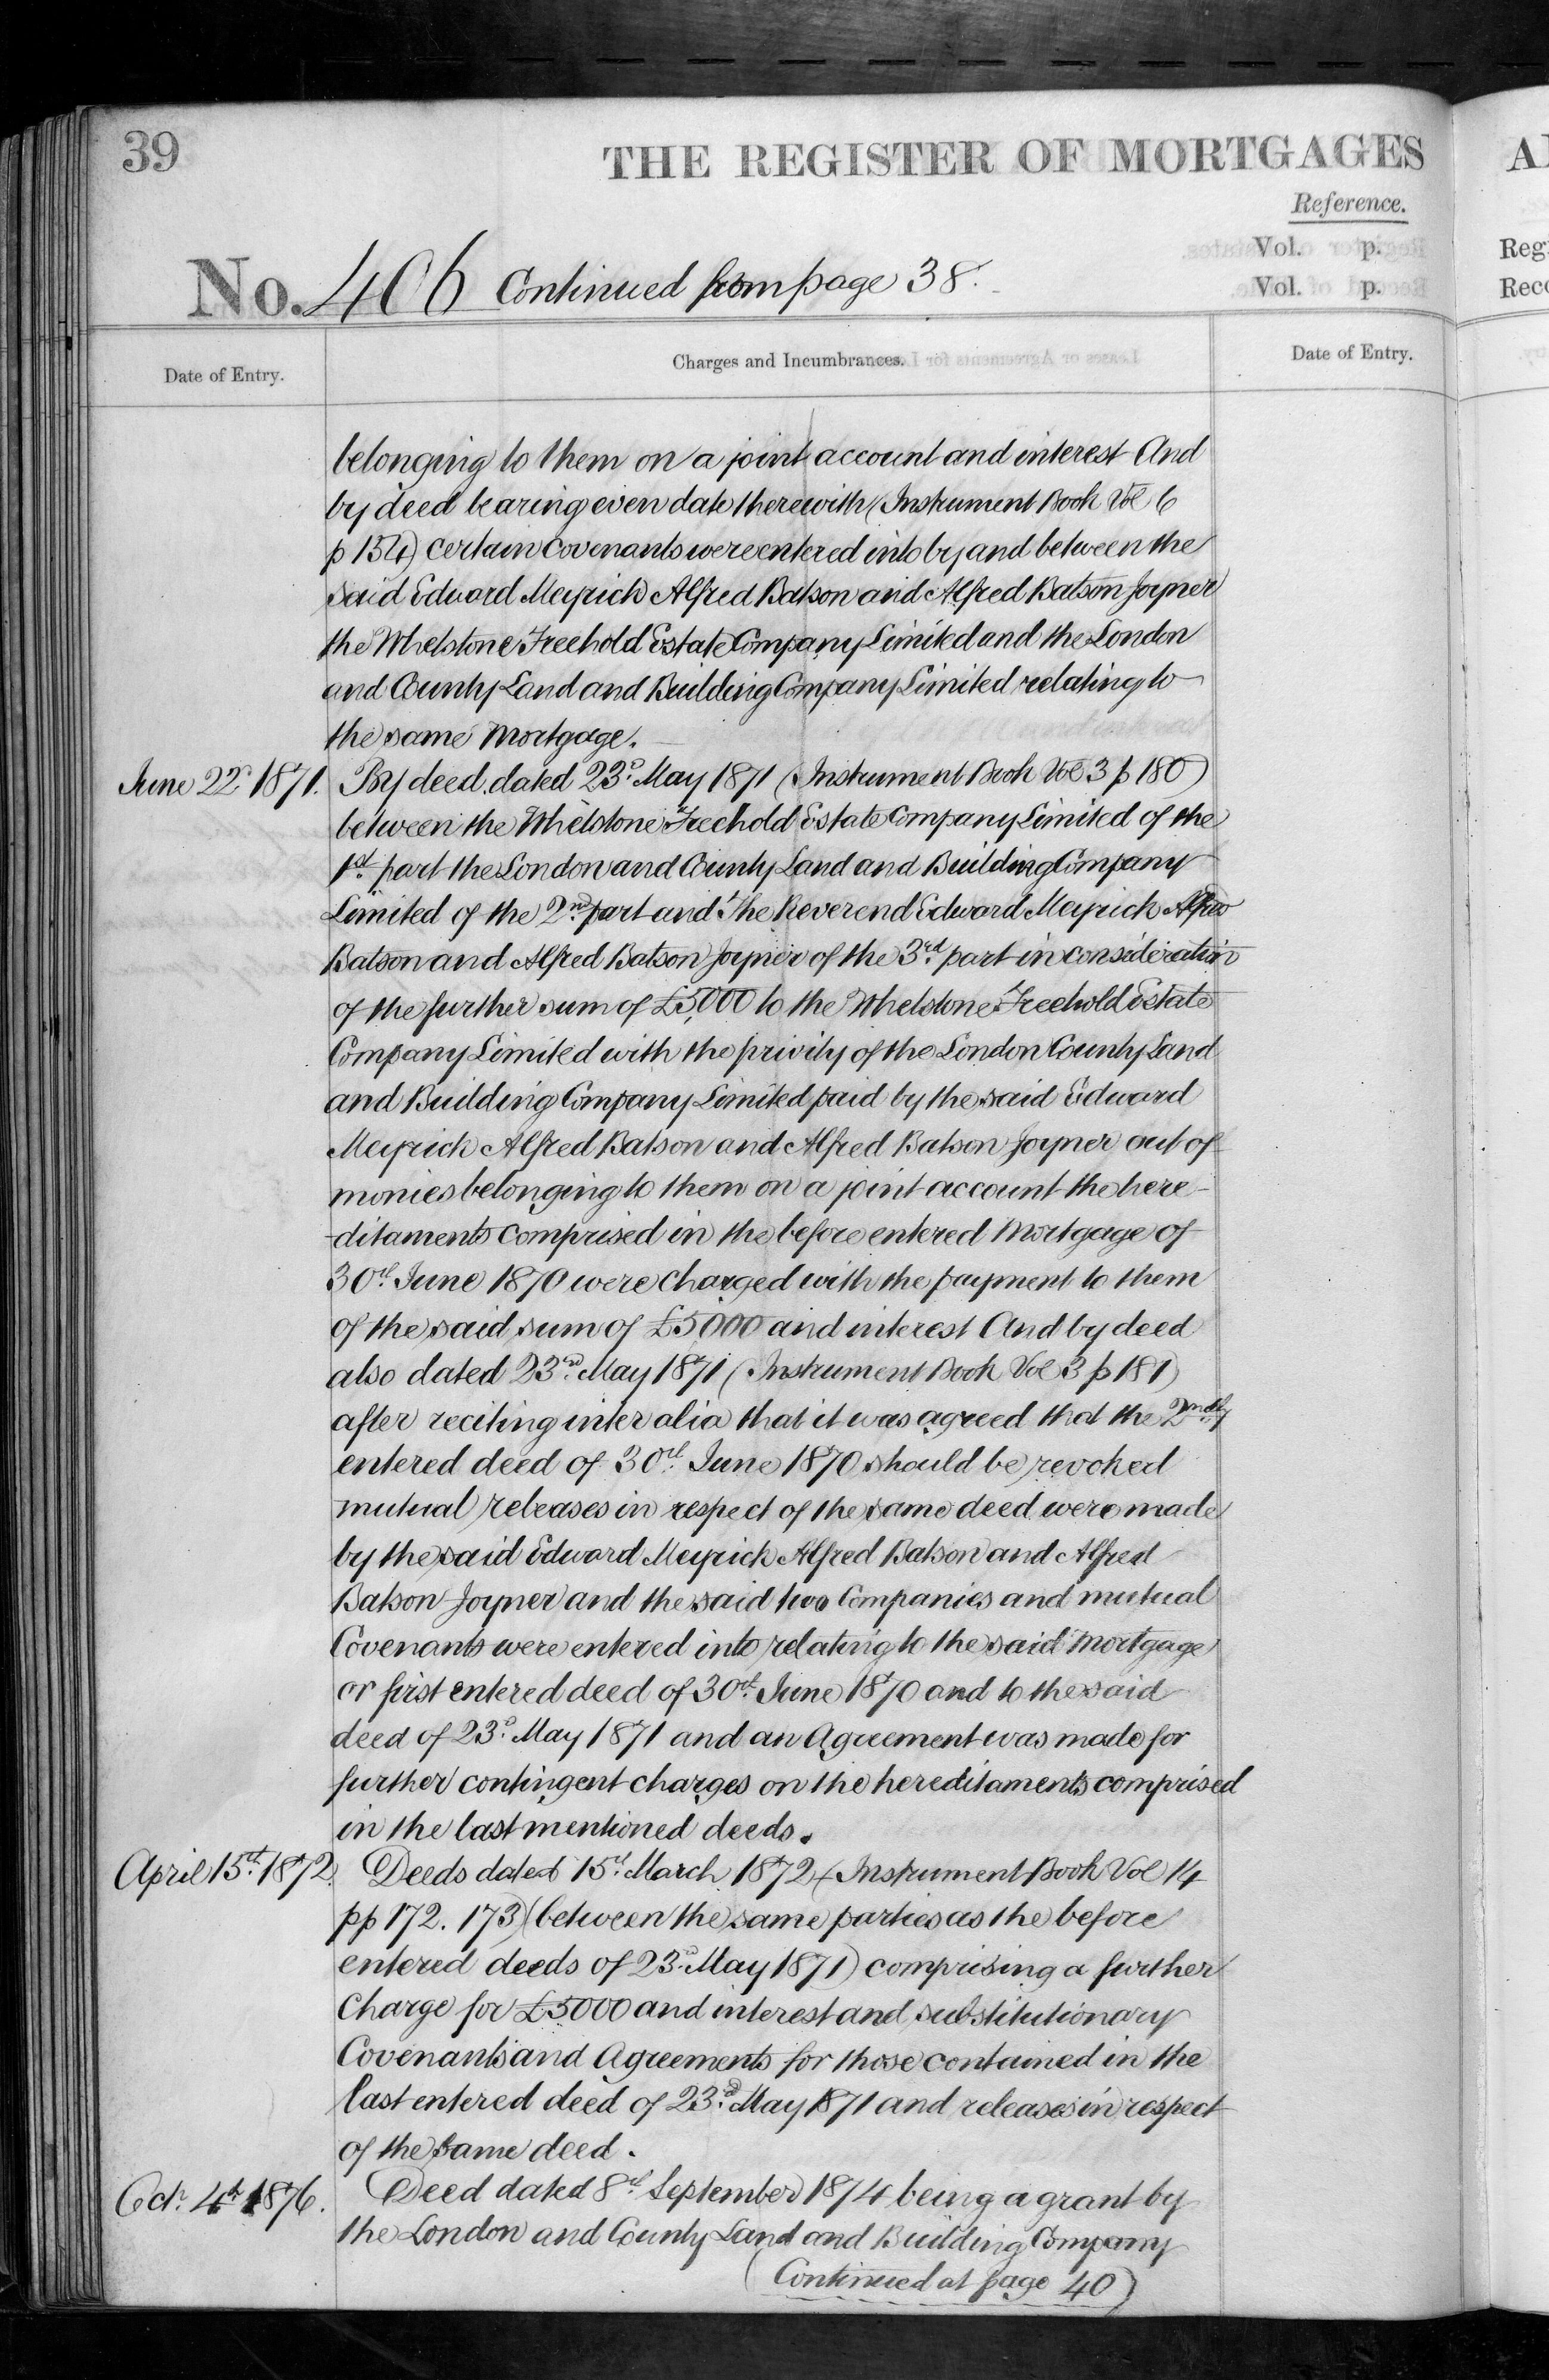 39
THE REGISTER OF MORTGAGES
Reference.
Vol. p.
Vol. p.
No. 406 Continued from page 38.
Date of Entry.
Charges and Incumbrances.
Date of Entry.
belonging to them on a joint account and interest And
by deed bearing even date therewith (Instrument Book Vol 6
p 154) certain Covenants were entered into by and between the
said Edward Meyrick Alfred Batson and Alfred Batson Joyner
the Whetstone Freehold Estate Company Limited and the London
and County Land and Building Company Limited relating to
the same Mortgage.
June 22d 1871. By deed dated 23d May 1871 (Instrument Book Vol 3 p 180)
between the Whetstone Freehold Estate Company Limited of the
1st part the London and County Land and Building Company
Limited of the 2nd part and The Reverend Edward Meyrick Alfred
Batson and Alfred Batson Joyner of the 3rd part in consideration
of the further sum of £5,000 to the Whetstone Freehold Estate
Company Limited with the privity of the London County Land
and Building Company Limited paid by the said Edward
Meyrick Alfred Batson and Alfred Batson Joyner out of
monies belonging to them on a joint account the here-
-ditaments comprised in the before entered Mortgage of
30th June 1870 were charged with the payment to them
of the said sum of £5000 and interest And by deed
also dated 23rd May 1871 (Instrument Book Vol 3 p 181)
after reciting inter alia that it was agreed that the 2ndly
entered deed of 30th June 1870 should be revoked
mutual releases in respect of the same deed were made
by the said Edward Meyrick Alfred Batson and Alfred
Batson Joyner and the said two Companies and mutual
Covenants were entered into relating to the said Mortgage
or first entered deed of 30th June 1870 and to the said
deed of 23d May 1871 and an Agreement was made for
further contingent charges on the hereditaments comprised
in the last mentioned deeds.
April 15th 1872. Deeds dated 15th March 1872 (Instrument Book Vol 14
pp 172. 173) (between the same parties as the before
entered deeds of 23rd May 1871) comprising a further
Charge for £5000 and interest and substitutionary
Covenants and Agreements for those contained in the
last entered deed of 23rd May 1871 and releases in respect
of the same deed.
Octr 4th 1876. Deed dated 8th September 1874 being a grant by
the London and County Land and Building Company
(Continued at page 40)
A
Reg
Rec